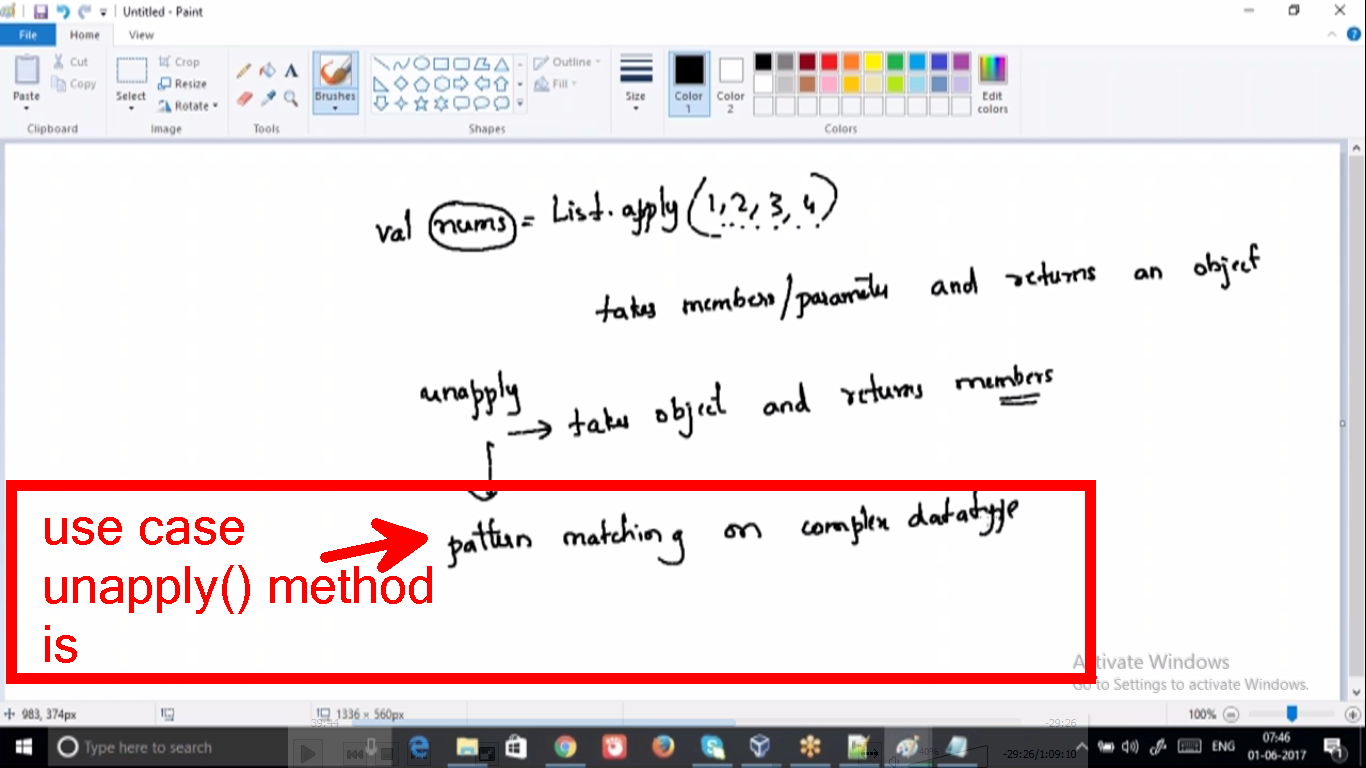 Untitled - Paint
File Home View
Paste
Cut
Copy
Clipboard
Select
Crop
Resize
Rotate
Image
Tools
Brushes
Shapes
Outline
Fill
Size
Color 1
Color 2
Edit colors
Colors
val nums = List.apply(1,2,3,4)
takes members/parameters and returns an object
unapply
→ takes object and returns members
pattern matching on complex datatype
use case
unapply() method
is
Activate Windows
Go to Settings to activate Windows.
983, 374px
1336 × 560px
100%
39:44
-29:26
Type here to search
40%
-29:26/1:09:10
ENG
07:46
01-06-2017
1